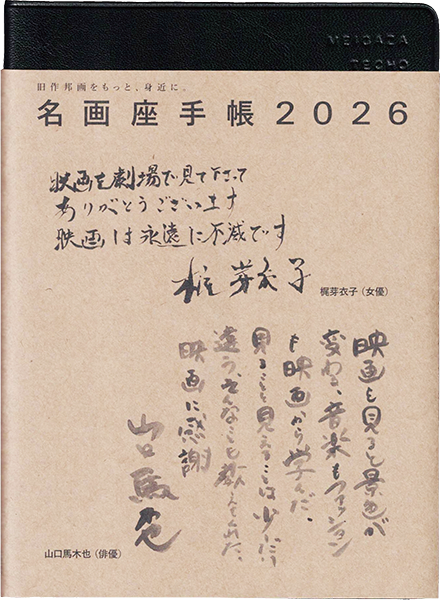 MEIGAZA
TECHO
旧作邦画をもっと、身近に。
名画座手帳2026
映画を劇場で見て下さって
ありがとうございます
映画は永遠に不滅です
梶芽衣子
梶芽衣子（女優）
映画を見ると景色が
変わる、音楽もファッション
も映画から学んだ。
見ることと見えることは少し
違う。そんなことも教えてくれた。
映画に感謝
山口馬木也
山口馬木也（俳優）